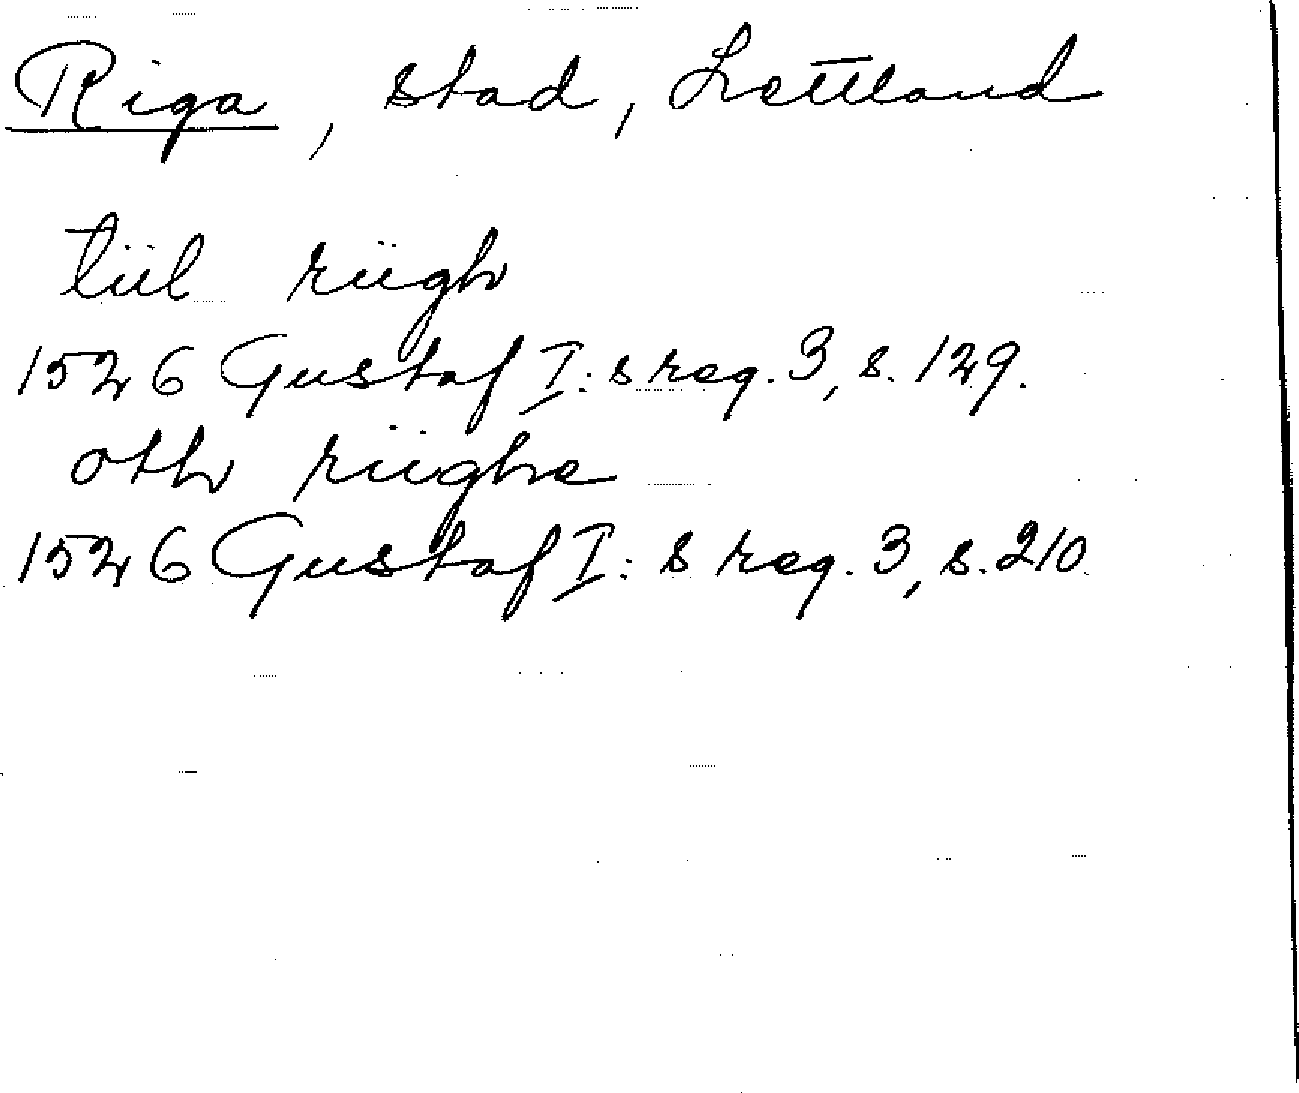 Riga, stad, Lettland
tiil riigh
1526 Gustaf I:s reg. 3, s. 129.
oth riighe
1526 Gustaf I:s reg. 3, s. 210.